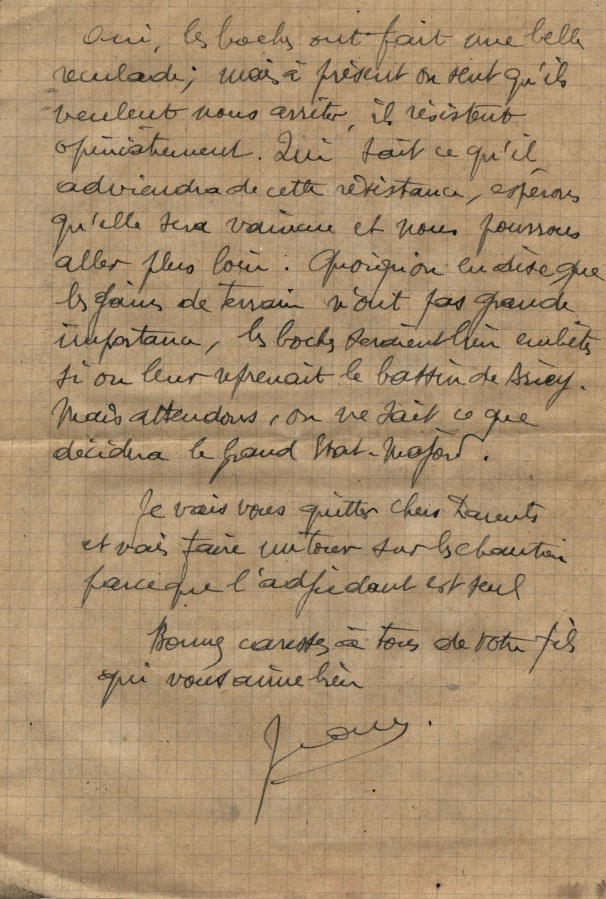 Oui, les boches ont fait une belle
reculade; mais à présent on sent qu'ils
veulent nous arrêter, ils résistent
opiniâtrement. Qui sait ce qu'il
adviendra de cette résistance, espérons
qu'elle sera vaincue et nous pourrons
aller plus loin. Quoiqu'on en dise que
les gains de terrain n'ont pas grande
importance, les boches seraient bien embêtés
si on leur reprenait le bassin de Briey.
Mais attendons, on ne sait ce que
décidera le Grand Etat-Major.
Je vais vous quitter chers Parents
et vais faire un tour sur les chantiers
parce que l'adjudant est seul
Bonnes caresses à tous de votre fils
qui vous aime bien